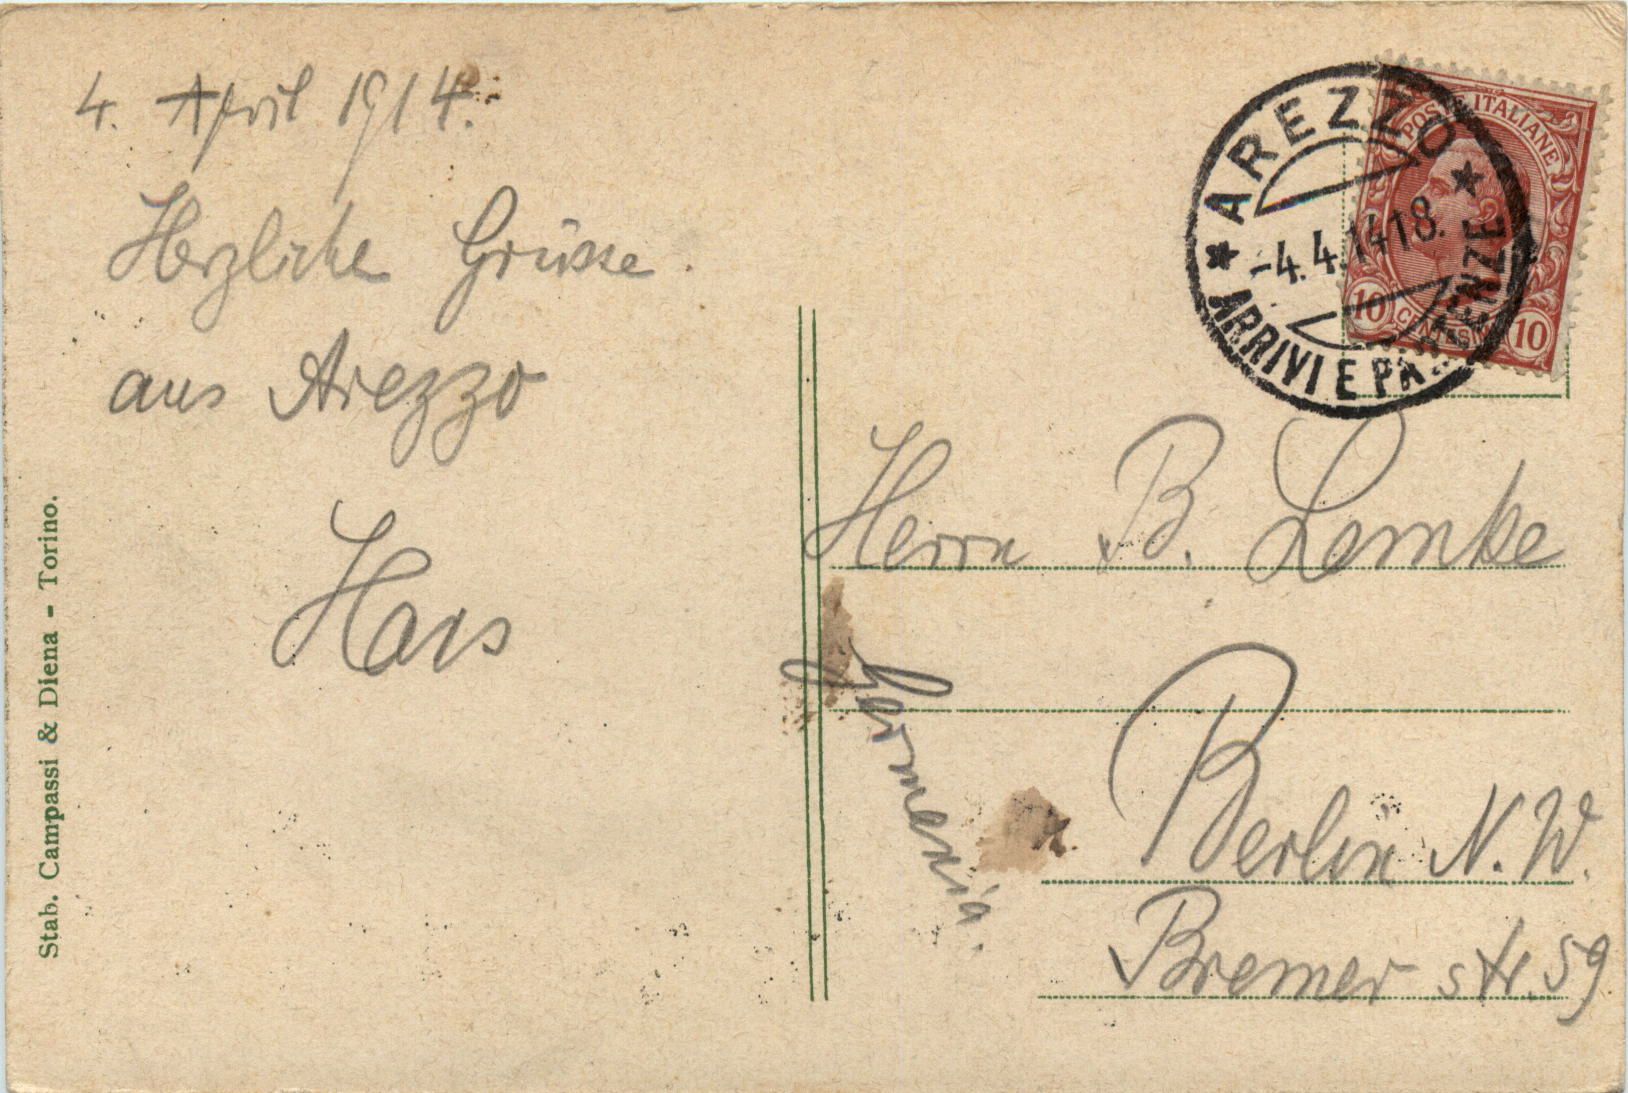 4. April 1914.
Herzliche Grüsse
aus Arezzo
Hans
Stab. Campassi & Diena - Torino.
POSTE ITALIANE
10 CENTESIMI 10
AREZZO
-4.4.14 18.
ARRIVI E PARTENZE
Herrn B. Lemke
Berlin N.W.
Bremer str. 59
Germania.